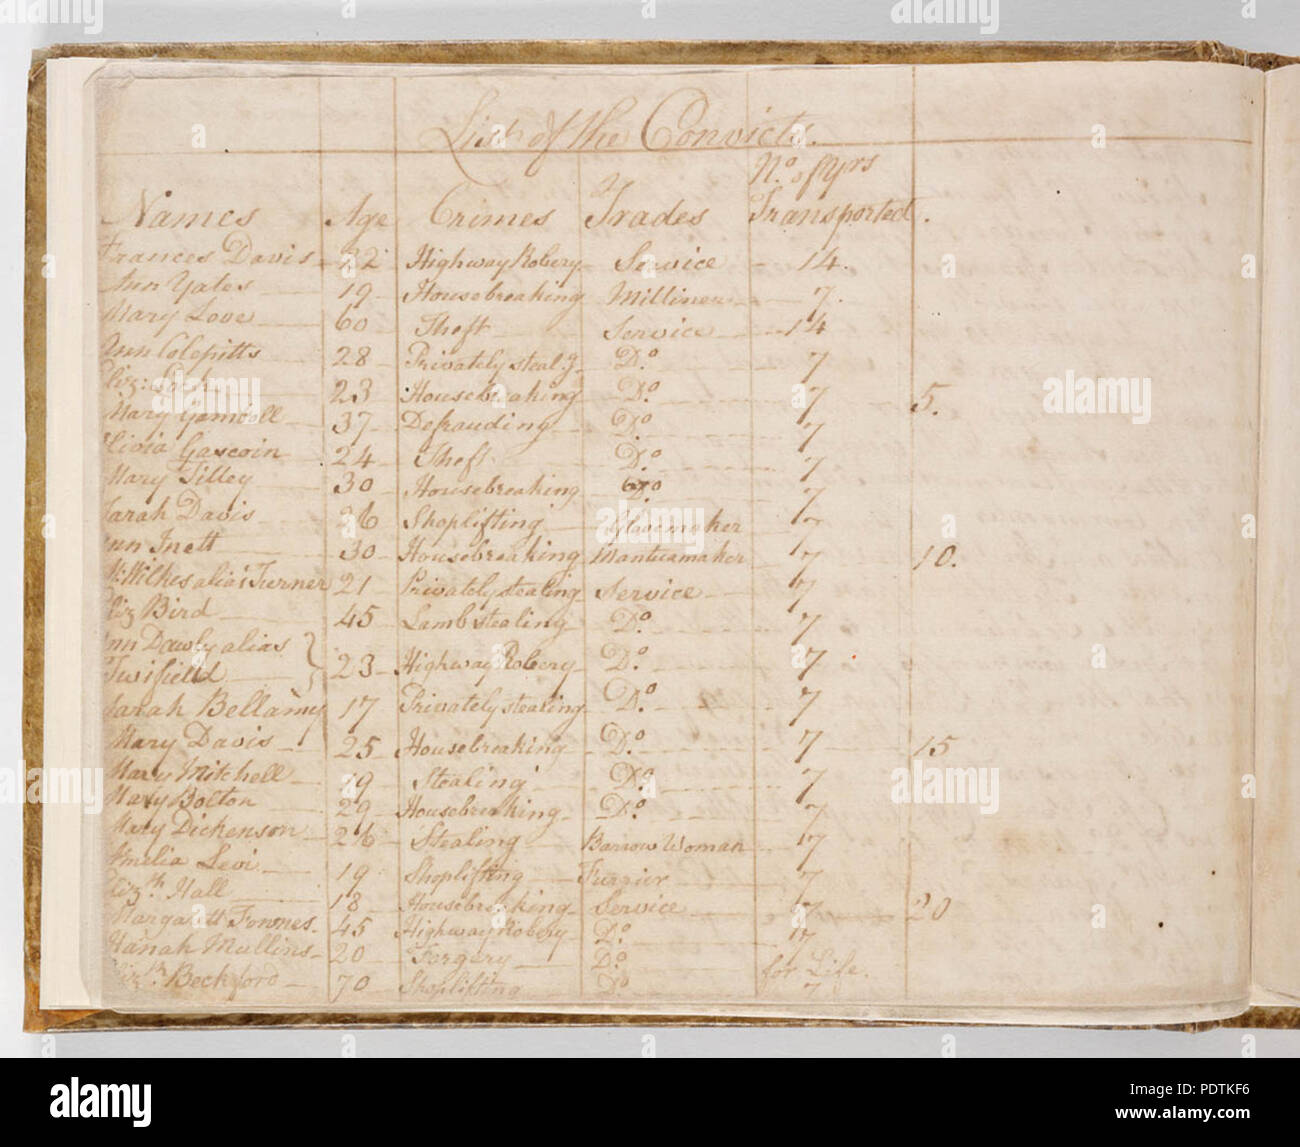 List of the Convicts.
Names Age Crimes Trades No. of Yrs Transported.
Frances Davis 22 Highway Robery Service 14.
Ann Yates 19 Housebreaking Milliner 7.
Mary Love 60 Theft Service 14
Ann Colepitts 28 Privately steal.g Do. 7
Eliz: Lock 23 Housebreaking Do. 7 5.
Mary Gamboll 37 Defrauding Do. 7
Olivia Gascoin 24 Theft Do. 7
Mary Tilley 30 Housebreaking Do 7
Sarah Davis 26 Shoplifting Glovemaker 7
Ann Inett 30 Housebreaking Mantuamaker 7 10.
M. Wilkes alias Turner 21 Privately stealing Service 7
Eliz Bird 45 Lamb stealing Do. 7
Ann Dawly alias
Twifield 23 Highway Robery Do. 7
Sarah Bellamy 17 Privately stealing Do. 7
Mary Davis 25 Housebreaking Do. 7 15
Mary Mitchell 19 Stealing Do. 7
Mary Bolton 29 Housebreaking Do. 7
Mary Dickenson 26 Stealing Barrow Woman 7
Amelia Levi 19 Shoplifting Furrier 7
Eliz.th Hall 18 Housebreaking Service 7 20
Margarett Fownes. 45 Highway Robery Do. 7
Hanah Mullins 20 Forgery Do. for Life.
Eliz.th Beckford 70 Shoplifting Do 7
alamy
Image ID: PDTKF6
www.alamy.com